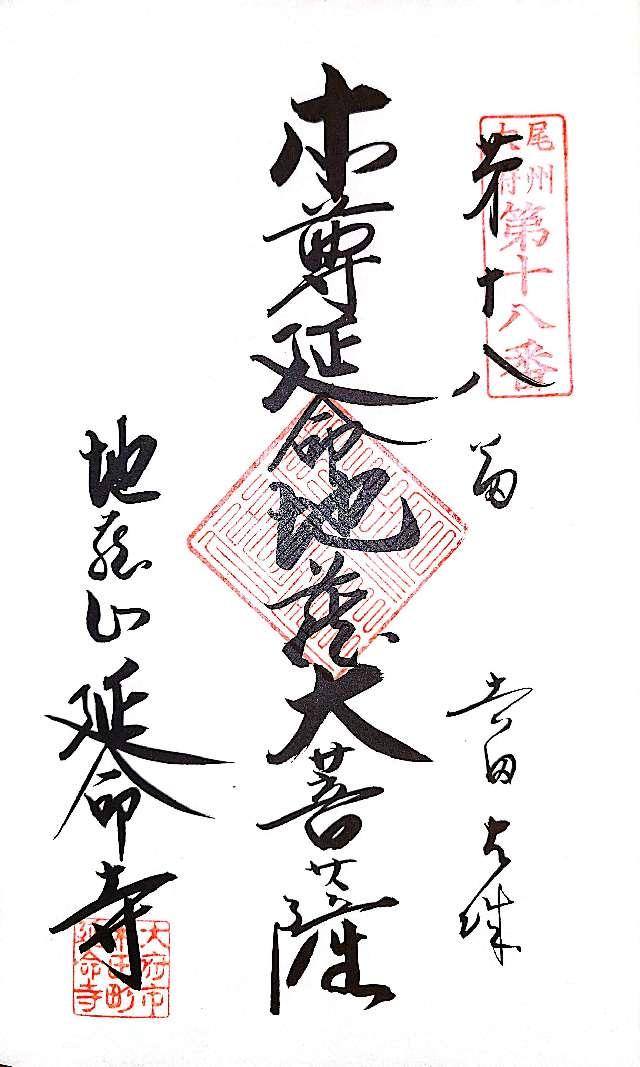 尾州
大府
第十八番
第十八番
本尊延命地蔵大菩薩
地蔵山延命寺
大府市
延命寺